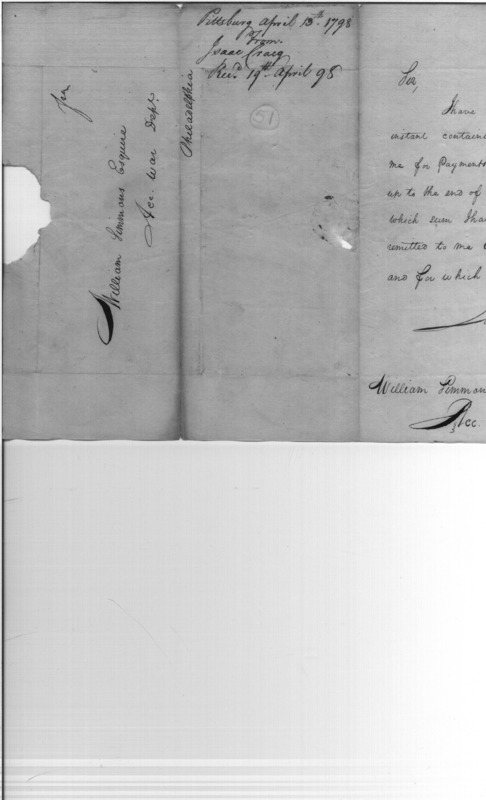 Pittsburg April 13th. 1798
From.
Isaac Craig
Recd. 19th April 98
51
for
William Simmons Esquire
Acc. War Dept.
Philadelphia
Sir,
I have
instant contain
me for Payment
up to the end of
which sum I ha
remitted to me
and for which
William Simmons
Acc.